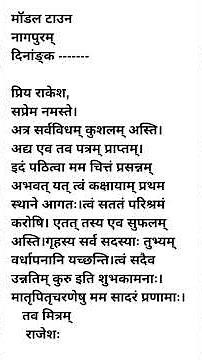 मॉडल टाउन
नागपुरम्
दिनांङ्क -------
प्रिय राकेश,
सप्रेम नमस्ते।
अत्र सर्वविधम् कुशलम् अस्ति।
अद्य एव तव पत्रम् प्राप्तम्।
इदं पठित्वा मम चित्तं प्रसन्नम्
अभवत् यत् त्वं कक्षायाम् प्रथम
स्थाने आगतः।त्वं सततं परिश्रमं
करोषि। एतत् तस्य एव सुफलम्
अस्ति।गृहस्य सर्व सदस्याः तुभ्यम्
वर्धापनानि यच्छन्ति।त्वं सदैव
उन्नतिम् कुरु इति शुभकामनाः।
मातृपितृचरणेषु मम सादरं प्रणामाः।
तव मित्रम्
राजेशः